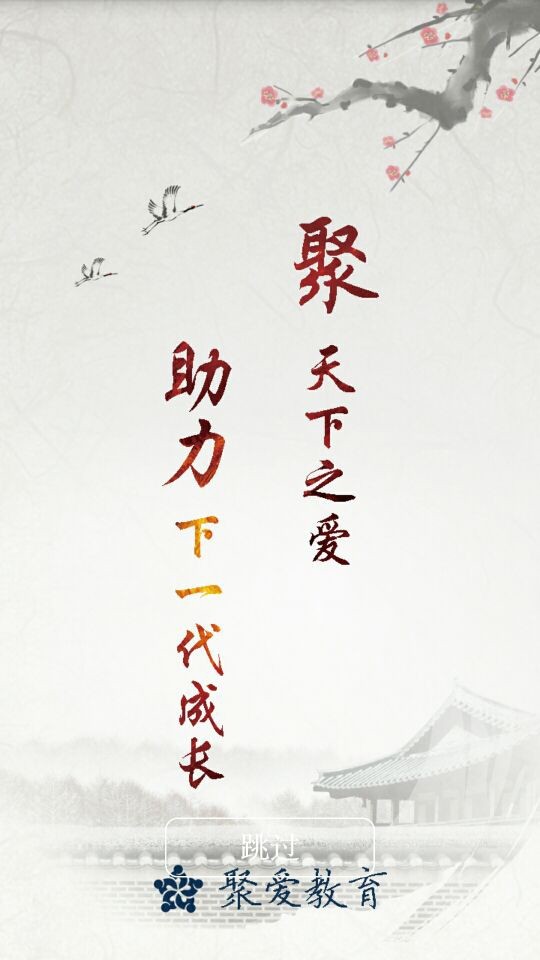 聚天下之爱
助力下一代成长
跳过
聚爱教育